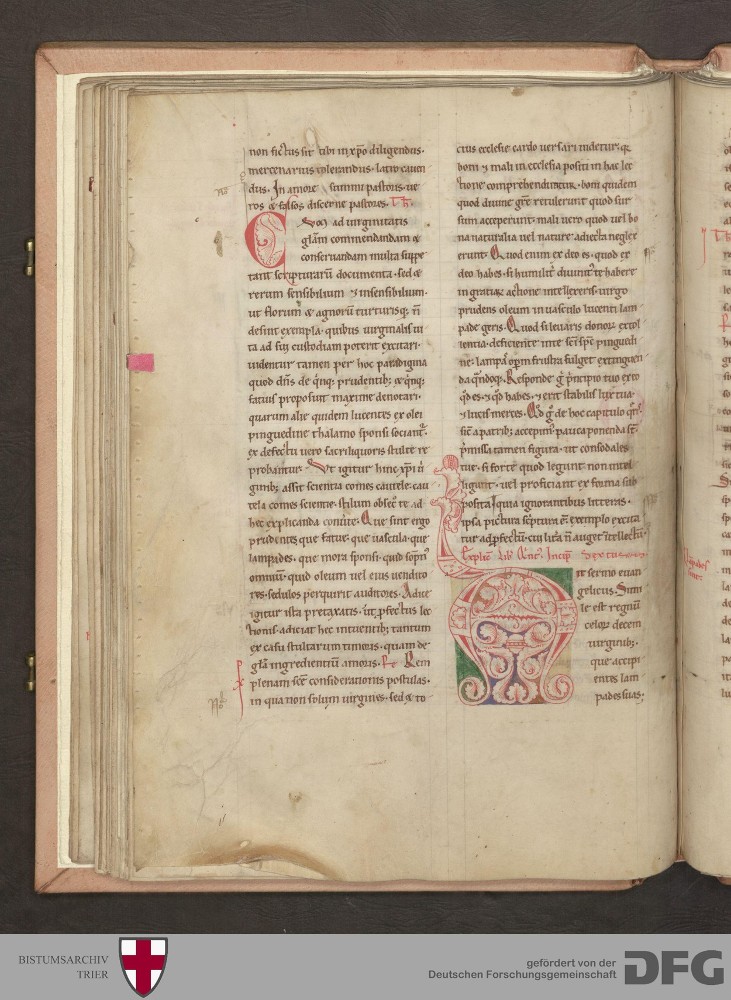 non fictus sit tibi in xpo diligendus.
mercenarius tolerandus. latro caven
dus. In amore summi pastoris. ve
ros & falsos discerne pastores. Th.
Et quoq; ad virginitatis
glam commendandam &
conservandam multa suppe
tant scripturaru documenta. sed &
rerum sensibilium & insensibilium.
ut florum & agnoru turturisq; n
desint exempla. quibus virginalis vi
ta ad sui custodiam poterit excitari.
videntur tamen per hoc paradigma
quod dns de qnq; prudentib; & qnq;
fatuis proposuit maxime denotari.
quarum alie quidem lucentes ex olei
pinguedine thalamo sponsi sociant.
ex defectu vero sacri liquoris stulte re
probantur. Ut igitur hinc xpi vi
ginib; assit scientia comes cautele. cau
tela comes scientie. stilum obsec te ad
hec explicanda convte. Que sint ergo
prudentes que fatue. que vascula. que
lampades. que mora sponsi. quid sopor
omnium. quid oleum vel eius vendito
res. sedulos perquirit auditores. Adice
igitur ista pretaxatis. ut pfectus lec
tionis adiciat hec intuentib; tantum
ex casu stultarum timoris. quam de
gla ingredientiu amoris. Rem
plenam sce considerationis postulas.
in qua non solum virginis. sed & to
tius ecclesie cardo versari videtur. q;
boni & mali in ecclesia positi in hac lec
tione comprehenduntur. boni quidem
quod divine gre retulerunt quod sur
sum acceperunt. mali vero quod vel bo
na naturalia vel nature adiecta neglex
erunt. Quod enim ex deo es. quod ex
deo habes. si humilit divinit te habere
in gratiar actione intellexeris. virgo
prudens oleum in vasculo lucenti lam
pade geris. Quod si levaris donor extol
lentia. deficiente in te sci sps pinguedi
ne. lampas opim frustra fulget extinguen
da qndoq;. Responde g pncipio tuo ex eo
qd es. & qd habes. & erit stabilis lux tua.
& lucis merces. Qd g de hoc capitulo qris.
sic a patrib; accepim. pauca ponenda st.
pmissa tamen figura. ut consodales
tue. si forte quod legunt non intel
ligunt. vel proficiant ex forma sub
posita. quia ignorantibus litteras.
ipsa pictura scptura e. exemplo excita
tur ad pfectu. cui litta n auget itellectu.
Explic lib Qnt. Incip Sextus.
it sermo evan
gelicus. Simi
le est regnu
celor decem
virginib;
que accipi
entes lam
pades suas.
BISTUMSARCHIV
TRIER
gefördert von der
Deutschen Forschungsgemeinschaft
DFG